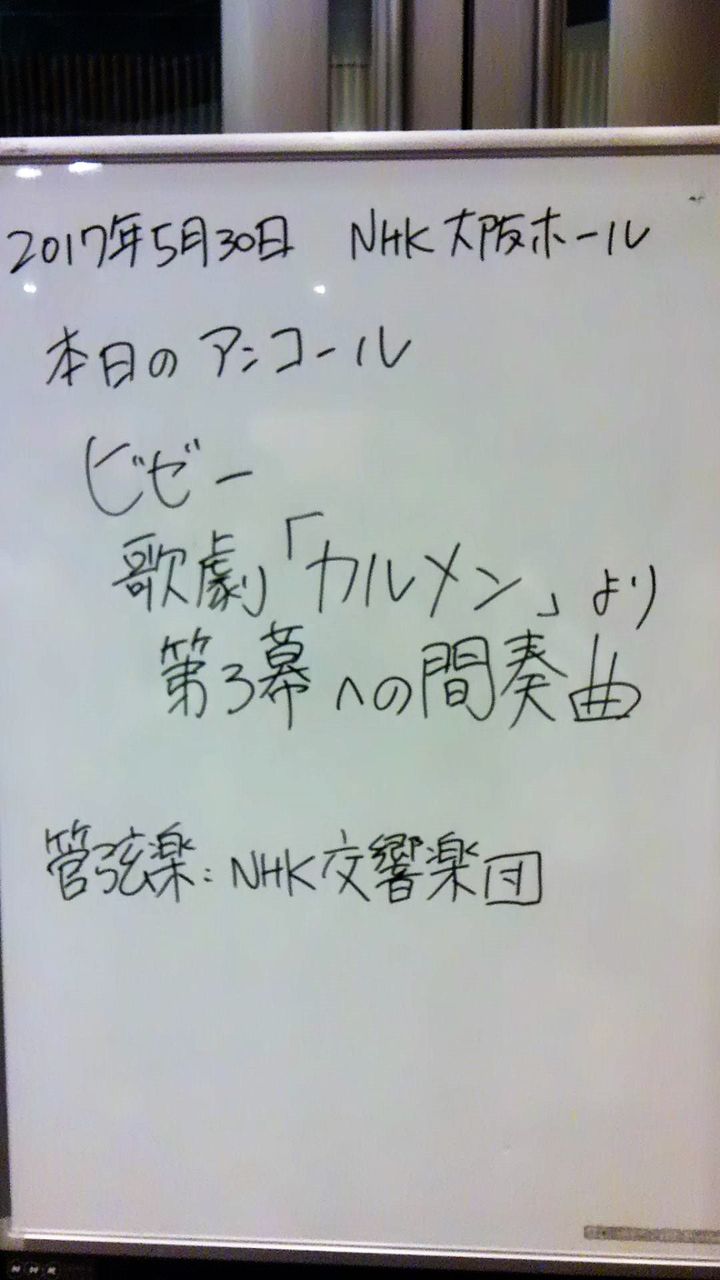 2017年5月30日 NHK大阪ホール
本日のアンコール
ビゼー
歌劇「カルメン」より
第3幕への間奏曲
管弦楽:NHK交響楽団
NHK